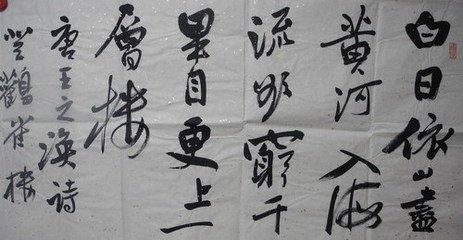 白日依山盡
黄河入海
流欲窮千
里目更上一
層楼
唐王之涣诗
登鸛雀楼